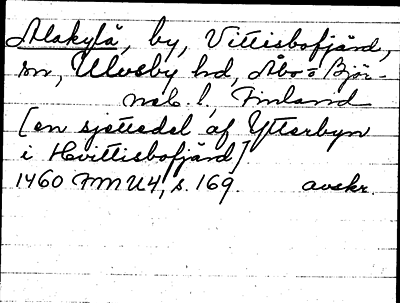 Alakylä, by, Vittisbofjärd,
sn, Ulvsby hd, Åbo=Björ-
neb. l, Finland
[en sjettedel af Ytterbyn
i Hvittisbofjärd]
1460 FMU4, s. 169. avskr.